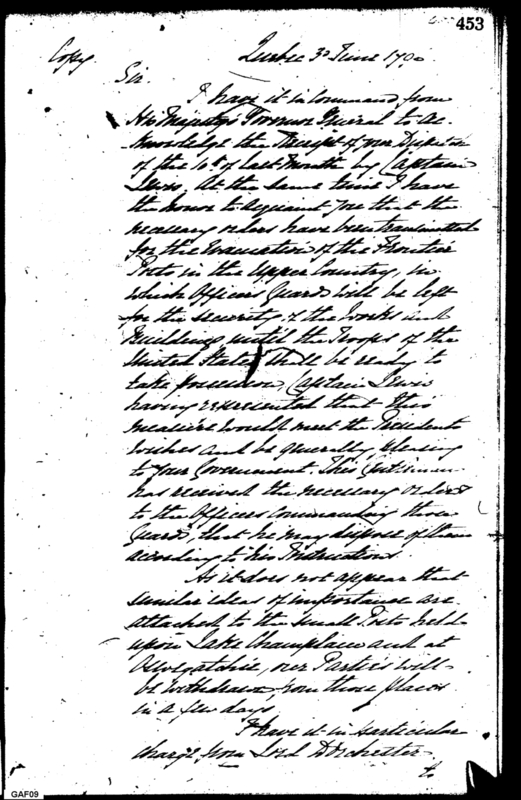 453
Copy Quebec 3d June 179
Sir.
I have it in Command from
His Majestys Governor General to ac-
knowledge the Receipt of your Dispatch
of the 10th of last Month by Captain
Lewis, At the same time I have
the honor to acquaint you that the
necessary orders have been transmitted
for the Evacuation of the Frontier
Posts in the Upper Country, in
which Officers Guards will be left
for the security of the Works and
Buildings until the Troops of the
United States shall be ready to
take possession, Captain Lewis
having represented that this
measure would meet the Presidents
wishes and be generally pleasing
to your Government. This Gentleman
has received the necessary orders
to the Officers Commanding those
Guards, that he may dispose of them
according to his Instructions.
As it does not appear that
similar ideas of importance are
attached to the small Posts held
upon Lake Champlain and at
Oswegatchie, our Parties will
be withdrawn from those places
in a few days.
I have it in particular
charge from Lord Dorchester
to
GAF09